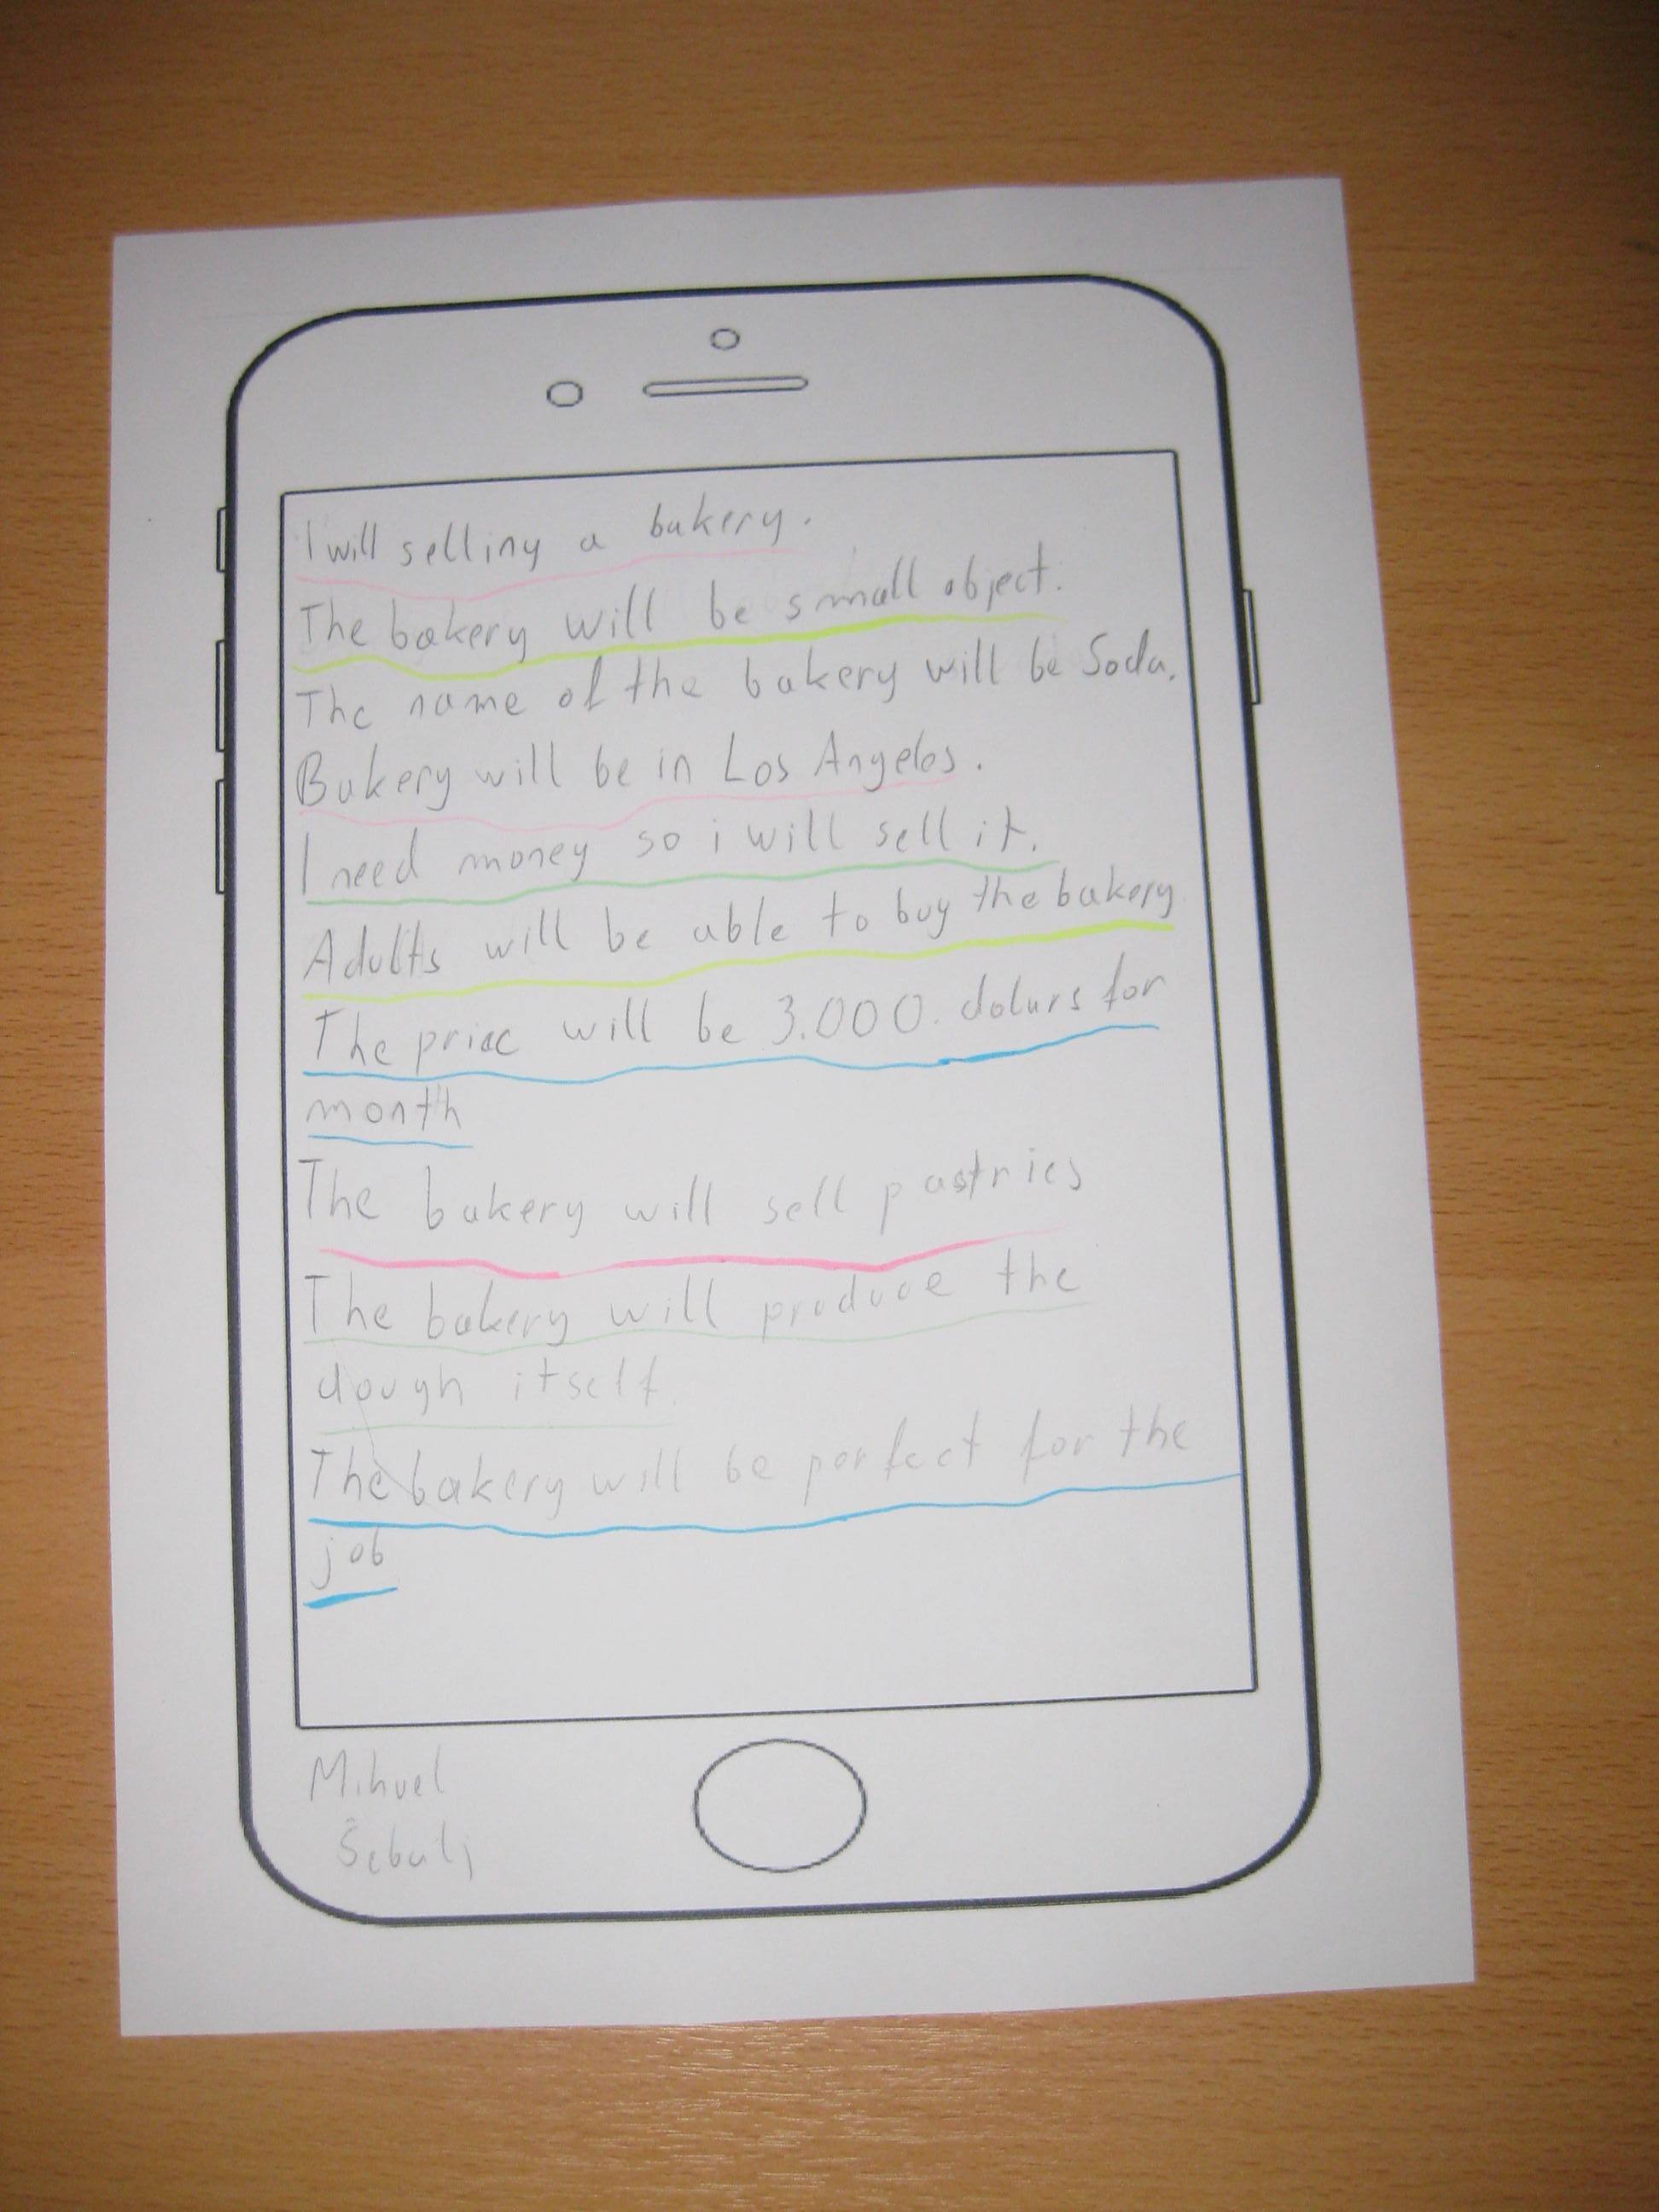 I will selling a bakery.
The bakery will be small object.
The name of the bakery will be Soda.
Bakery will be in Los Angeles.
I need money so i will sell it.
Adults will be able to buy the bakery
The price will be 3.000. dolars for
month
The bakery will sell pastries
The bakery will produce the
dough itself.
The bakery will be perfect for the
job
Mihael
Šebalj